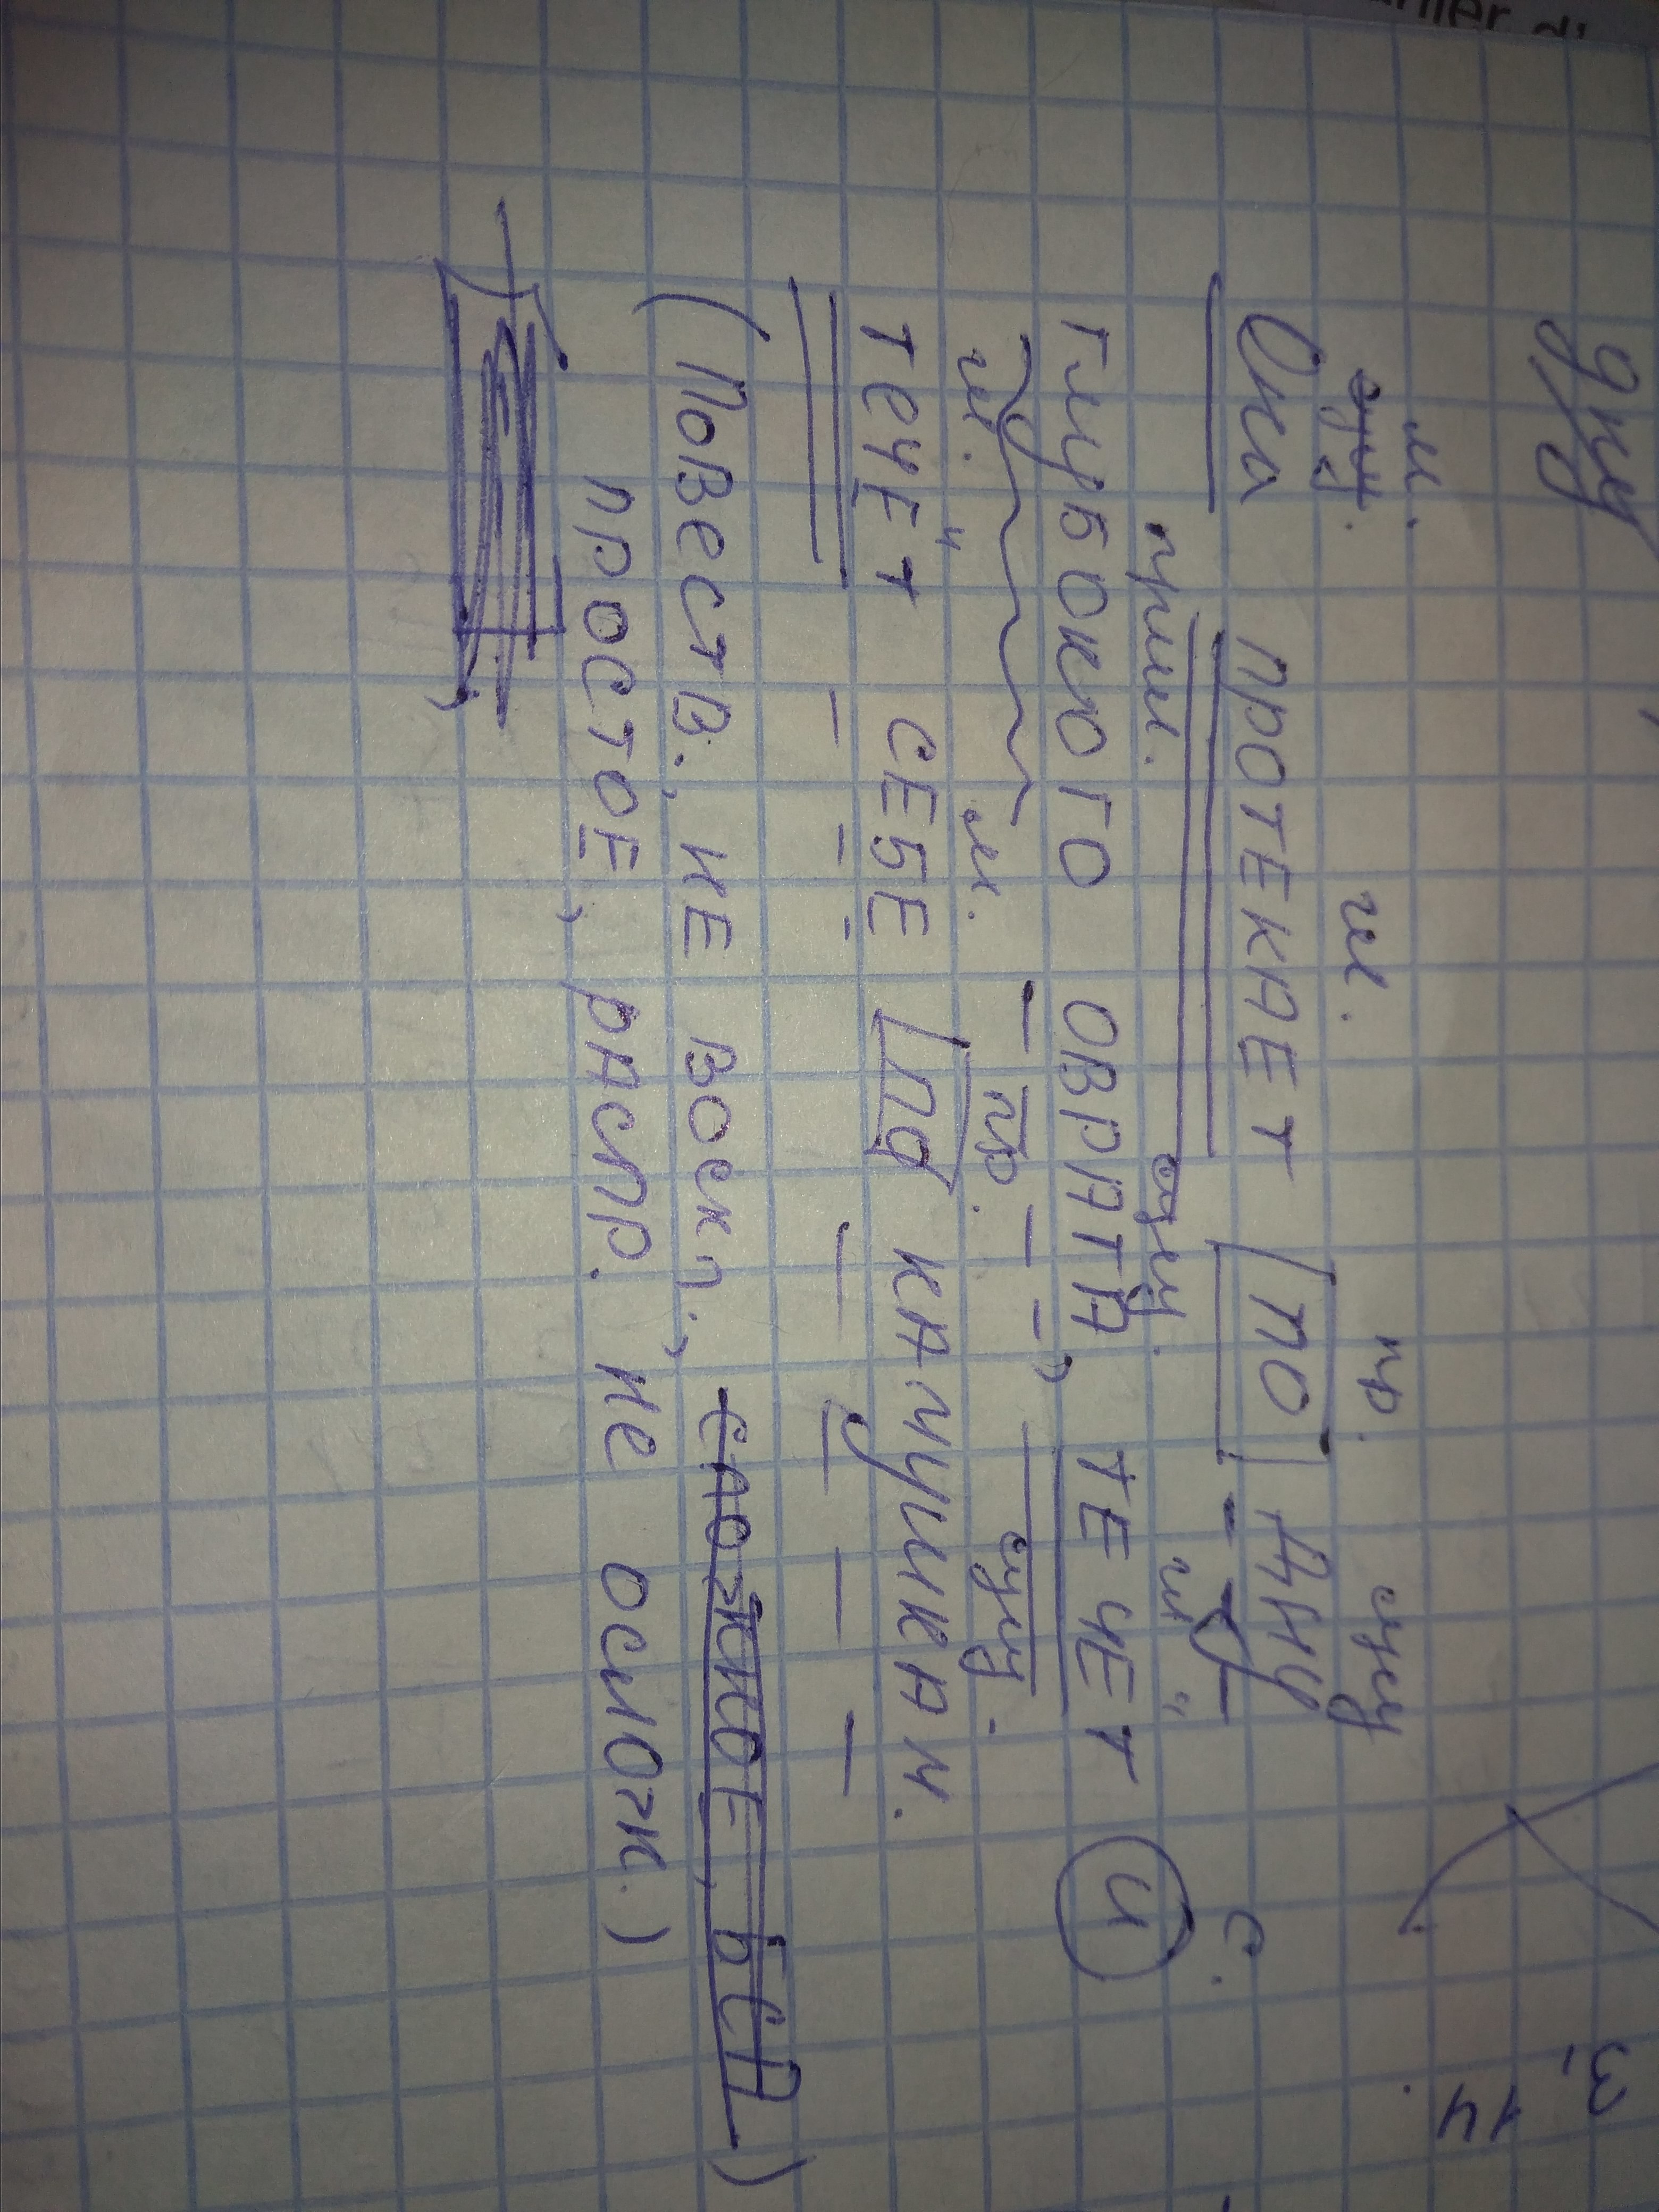 дну
3.
14
м. гл. пр. сущ
сущ.
Она ПРОТЕКАЕТ ПО ДНУ
прил. сущ. гл. с.
глубокого ОВРАГА, ТЕЧЕТ и
гл. м. пр. сущ.
ТЕЧЕТ СЕБЕ по КАМУШКАМ.
(Повеств., НЕ воскл., сложное, БСП)
ПРОСТОЕ, РАСПР. не ослож.)